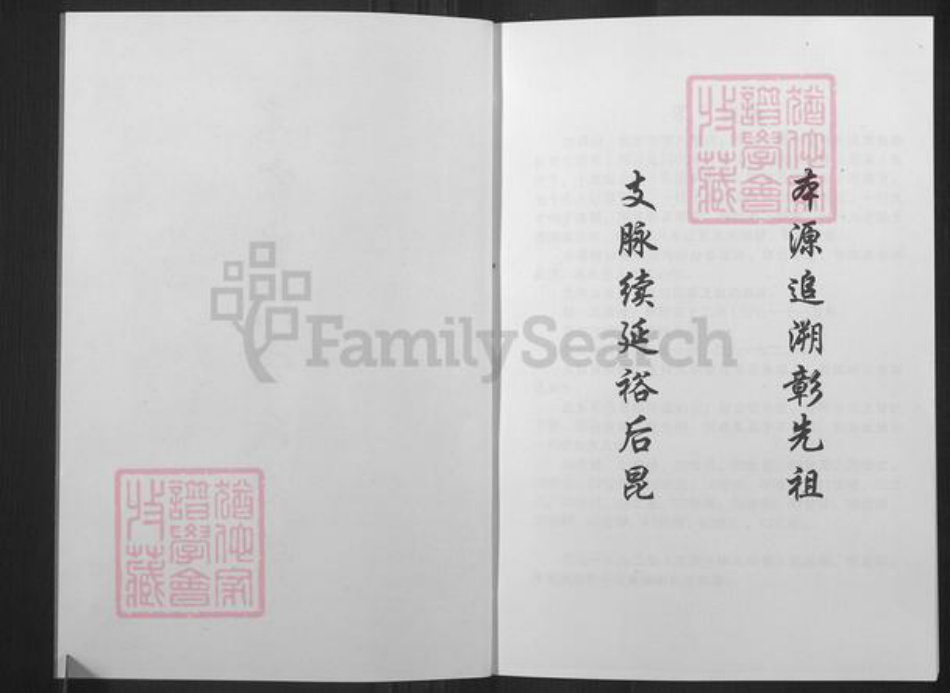 本源追溯彰先祖
支脉续延裕后昆
猶他家
譜學會
收藏
猶他家
譜學會
收藏
FamilySearch